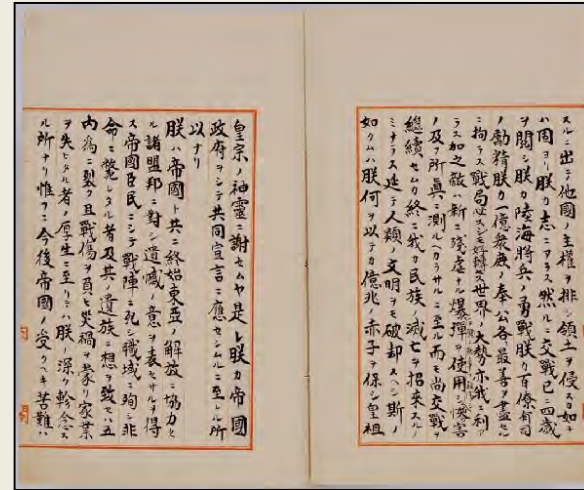 スルニ出テ他國ノ主權ヲ排シ領土ヲ侵スカ如キ
ハ固ヨリ朕カ志ニアラス然ルニ交戰已ニ四歳
ヲ閲シ朕カ陸海將兵ノ勇戰朕カ百僚有司
ノ勵精朕カ一億衆庶ノ奉公各最善ヲ盡セル
ニ拘ラス戰局必スシモ好轉セス世界ノ大勢亦我ニ利ア
ラス加之敵ハ新ニ殘虐ナル爆彈ヲ使用シテ頻ニ無辜ヲ殺傷シ慘害
ノ及フ所眞ニ測ルヘカラサルニ至ル而モ尚交戰ヲ
繼續セムカ終ニ我カ民族ノ滅亡ヲ招來スルノ
ミナラス延テ人類ノ文明ヲモ破却スヘシ斯ノ
如クムハ朕何ヲ以テカ億兆ノ赤子ヲ保シ皇祖
皇宗ノ神靈ニ謝セムヤ是レ朕カ帝國
政府ヲシテ共同宣言ニ應セシムルニ至レル所
以ナリ
朕ハ帝國ト共ニ終始東亞ノ解放ニ協力セ
ル諸盟邦ニ對シ遺憾ノ意ヲ表セサルヲ得
ス帝國臣民ニシテ戰陣ニ死シ職域ニ殉シ非
命ニ斃レタル者及其ノ遺族ニ想ヲ致セハ五
内爲ニ裂ク且戰傷ヲ負ヒ災禍ヲ蒙リ家業
ヲ失ヒタル者ノ厚生ニ至リテハ朕ノ深ク軫念ス
ル所ナリ惟フニ今後帝國ノ受クヘキ苦難ハ